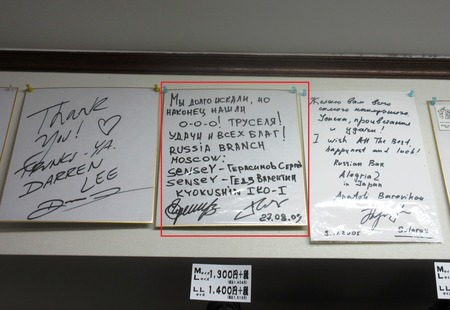 THANK
YOU! ♡
DARREN
LEE
Мы долго искали, но
наконец нашли
О-О-О! ТРУСЕЛЯ!
УДАЧИ И ВСЕХ БЛАГ!
RUSSIA BRANCH
MOSCOW:
SENSEY - Герасимов Сергей
SENSEY - Тедз Валентин
KYOKUSHIN IKO-I
27.08.05
Желаю вам всего
самого наилучшего.
Успеха, процветания
и удачи!
I wish All The Best,
happyness and luck!
Russian Bar
Alegria 2
in Japan
Anatoli Baravikou
5.1.2005
1,300円+税
LL 1,400円+税